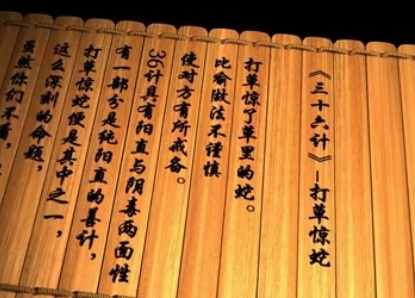 《三十六计》—打草惊蛇
打草惊了草里的蛇。
比喻做法不谨慎
使对方有所戒备。
36计具有阳直与阴毒两面性
有一部分是纯阳直的善计，
打草惊蛇便是其中之一，
这么深刻的命题，
虽然你们不看，